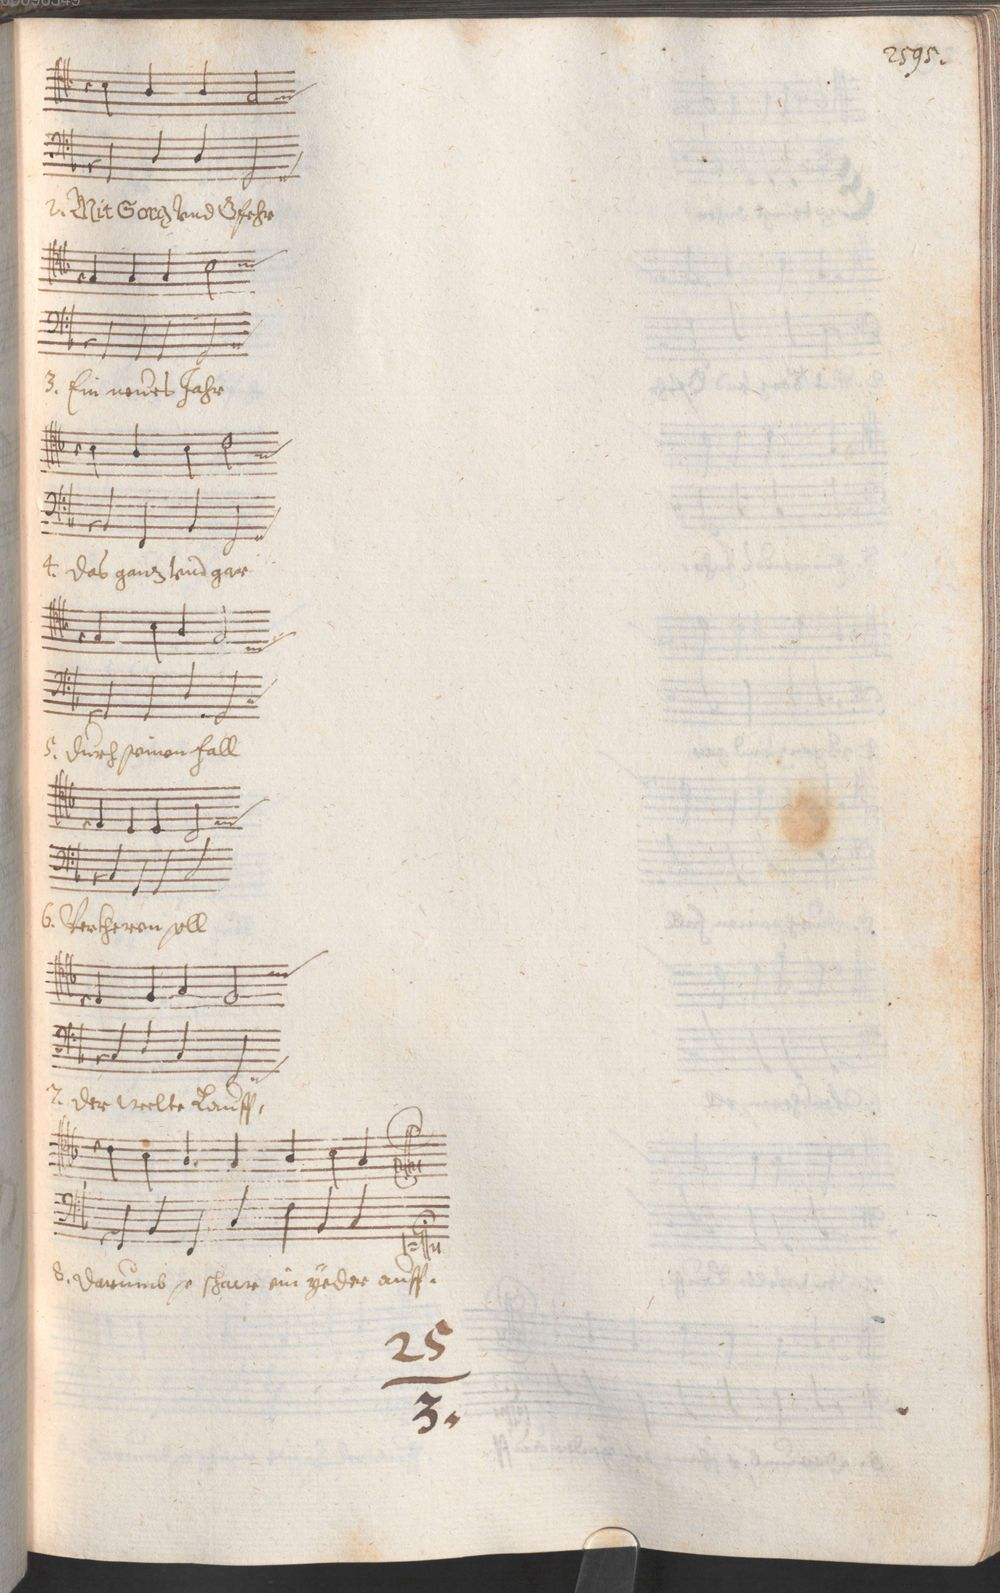 2595.
2. Mit Sorg vnd Gfehr
3. Ein neües Jahr
4. das ganz vnd gar
5. durch seinen fall
6. Verkheren soll
7. der welte Lauff,
8. darumb so schawe ein yeder auff.
25
3.